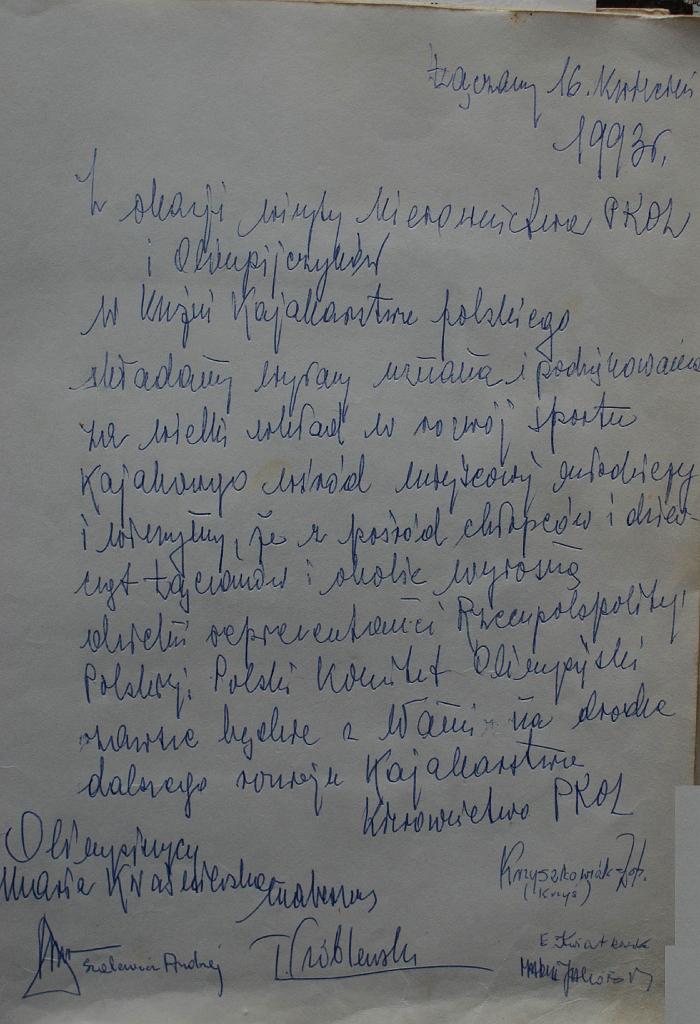 Łączany 16. Kwiecień
1993r.
Z okazji wizyty Kierownictwa PKOL
i Olimpijczyków
w Kuźni Kajakarstwa polskiego
składamy wyrazy uznania i podziękowania
za wielki wkład w rozwój sportu
Kajakowego wśród miejscowej młodzieży
i wierzymy, że z pośród chłopców i dziew
cząt Łączanów i okolic wyrosną
dzielni reprezentanci Rzeczypospolitej
Polskiej. Polski Komitet Olimpijski
zawsze będzie z Wami na drodze
dalszego rozwoju Kajakarstwa
Kierownictwo PKOL
Olimpijczycy
Maria Kwaśniewska
Krzyszkowiak Zdz.
(Krzyś)
Andrzej
T. Wróblewski
E. Kwiatkowska